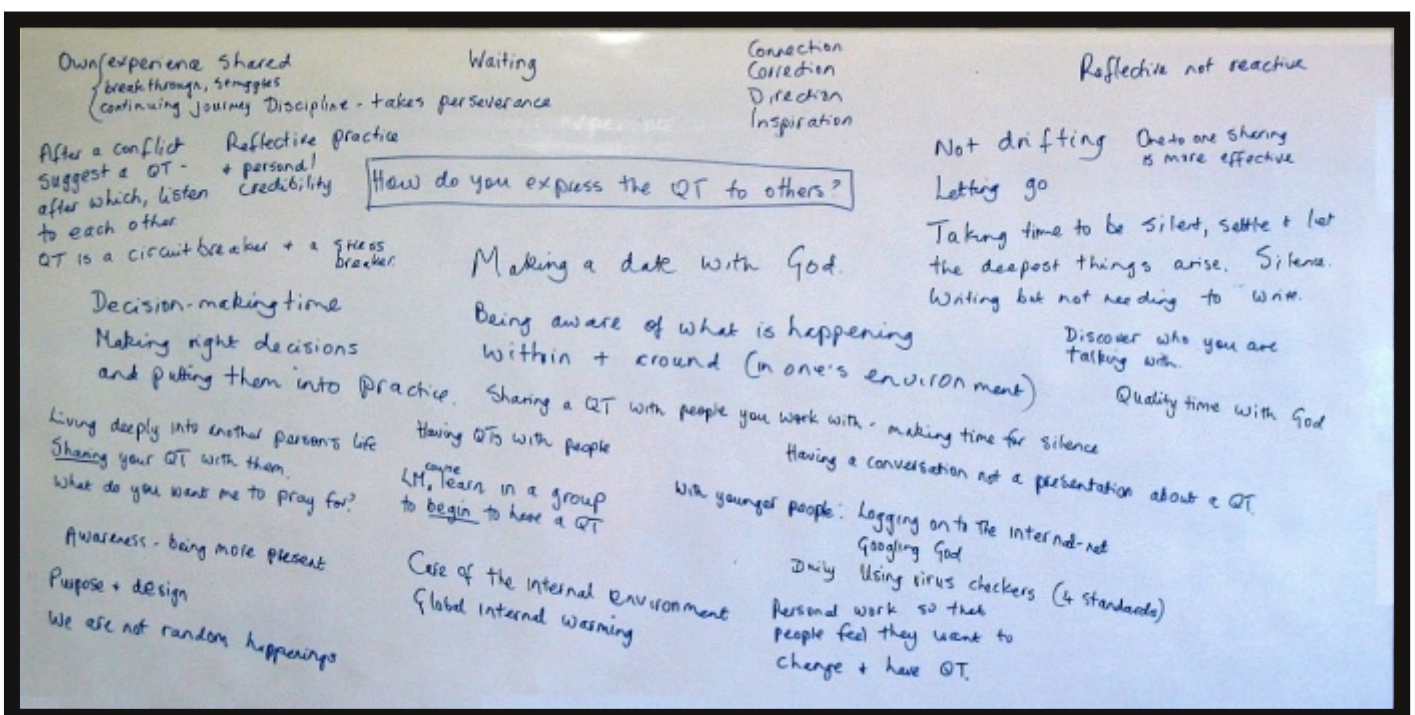 Own experience shared
breakthrough, struggles
continuing journey Discipline - takes perseverance
Waiting
Connection
Correction
Direction
Inspiration
Reflective not reactive
After a conflict
suggest a QT -
after which, listen
to each other
QT is a circuit breaker + a stress
breaker.
Reflective practice
+ personal
credibility
How do you express the QT to others?
Not drifting
One to one sharing
is more effective
Letting go
Taking time to be silent, settle + let
the deepest things arise. Silence.
Writing but not needing to write.
Making a date with God.
Decision-making time
Making right decisions
and putting them into practice.
Being aware of what is happening
within + around (in one's environment)
Discover who you are
talking with.
Quality time with God
Sharing a QT with people you work with - making time for silence
Living deeply into another person's life
Sharing your QT with them.
What do you want me to pray for?
Having QTs with people
Having a conversation not a presentation about a QT.
learn in a group
to begin to have a QT
With younger people: Logging on to the internal-net
Googling God
Daily Using virus checkers (4 standards)
Awareness - being more present
Purpose + design
We are not random happenings
Care of the internal environment
Global internal warming
Personal work so that
people feel they want to
change + have QT.